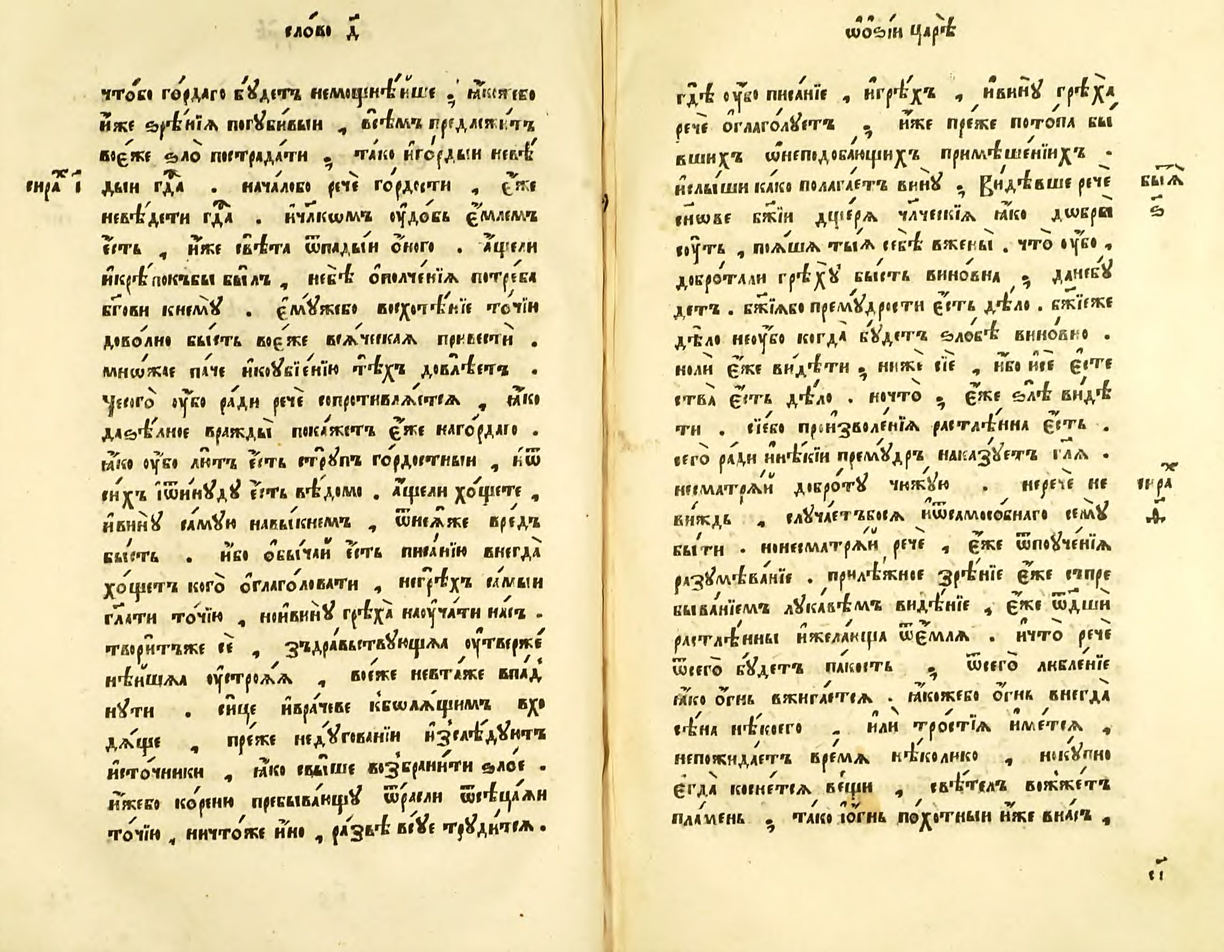 сло́во д҃
что́бо го́рдаго бꙋ́детъ немощнѣ́йше ; ꙗ҆́коꙗ҆́ебо
и҆́же ѕрѣ́нїѧ погꙋби́выи , всѣ́мъ предлежи́тъ
восе́же ѕло̀ пострада́ти , та́ко и҆го́рдыи невѣ́
сира́х і҃
дыи гдⷭ҇а . нача́лобо речѐ го́рдости , є҆́же
невѣ́дети гдⷭ҇а . и҆чл҃кѡмъ ᲂу҆до́бь є҆́млемъ
є҆́сть , и҆́же свѣ́та ѿпады́и ѻ҆́ного . а҆́щели
и҆крѣ́покъбы бы́лъ , небѣ̀ ѻ҆полче́нїѧ потре́ба
бг҃ови кнемꙋ̀ . є҆мꙋ́жебо восхотѣ́нїе то́чїи
дово́лно бы́сть восе́же всѧ́ческаѧ привестѝ .
мно́жае па́че и҆коубїе́нїю тѣ́хъ довлѣ́етъ .
чесого̀ ᲂу҆́бо ра́ди речѐ сопротивлѧ́етсѧ , ꙗ҆́ко
даѕѣ́лное вражды̀ пока́жетъ є҆́же наго́рдаго .
ꙗ҆́ко ᲂу҆́бо лю́тъ є҆́сть стрꙋ́пъ го́рдостныи , и҆ѿ
си́хъ і҆ѿи́нꙋдꙋ є҆́сть вѣ́домо . а҆́щели хо́щете ,
и҆винꙋ̀ са́мꙋю навы́кнемъ , ѿнеѧ́же вре́дъ
бы́сть . и҆́бо ѻ҆бы́чай є҆́сть писа́нїю внегда̀
хо́щетъ кого̀ ѻ҆глаго́ловати , негрѣ́хъ са́мыи
гл҃ати то́чїю , нои҆винꙋ̀ грѣха̀ наꙋча́ти на́съ .
твори́тъже сѐ , зъдра́вьствꙋющаѧ ᲂу҆тверже́
нѣ́йшаѧ ᲂу҆стро́ѧѧ , восе́женевта́же впад
нꙋ́ти . си́це и҆вра́чеве кболѧ́щимъ вхо
дѧ́ще , пре́же недꙋ́гованїи и҆зслѣ́дꙋютъ
и҆сто́чники , ꙗ҆́ко свы́ше возбрани́ти ѕло́е .
и҆́жебо ко́реню пребыва́ющꙋ ѿра́сли ѿсѣца́ѧи
то́чїю , ничто́же и҆́но , ра́звѣ всꙋ́е трꙋ́дитсѧ .
ѡ҆ѻ҆зі́и царѣ̀
гдѣ̀ ᲂу҆́бо писа́нїе , и҆грѣ́хъ , и҆винꙋ̀ грѣха̀
речѐ ѻ҆глаго́лꙋетъ ; и҆́же пре́же пото́па бы́
вшихъ ѡ҆неподоба́ющихъ примѣше́нїихъ .
и҆слы́ши ка́ко полага́етъ винꙋ̀ ; Ви́дѣвше речѐ
быт҇ѧ
ѕ҃
сн҃ове бж҃їи дще́рѧ чл҃ческїѧ ꙗ҆́ко дѡбры̀
сꙋ́ть , поѧ́шѧ ты́ѧ себѣ̀ вжены̀ . что̀ ᲂу҆́бо ,
добро́тали грѣхꙋ̀ бы́сть вино́вна ; данебꙋ́
детъ . бж҃їѧбо премꙋ́дрости є҆́сть дѣ́ло . бж҃їеже
дѣ́ло неᲂу҆́бо когда̀ бꙋ́детъ ѕло́бѣ вино́вно .
ноли̑ є҆́же ви́дѣти ; нижѐ сїѐ , и҆́бо и҆сѐ є҆сте
ства̀ є҆́сть дѣ́ло . ночто̀ ; є҆́же ѕлѣ̀ ви́дѣ
ти . сїе́бо произволе́нїѧ растлѣ́нна є҆́сть .
сего̀ ра́ди и҆нѣ́кїи премꙋ́дръ наказꙋ́етъ гл҃ѧ .
несматрѧ́й добротꙋ̀ чюжꙋ́ю . неречѐ не
сира́х
ѳ҃
ви́ждь , слꙋча́етъбосѧ и҆ѿсамосо́бнаго семꙋ̀
бы́ти . нонесматрѧ́й речѐ , є҆́же ѿпоꙋче́нїѧ
разꙋмѣва́нїе . прилѣ́жное зрѣ́нїе є҆́же съпре
быва́нїемъ лꙋка́вемъ ви́дѣнїе , є҆́же ѿдш҃и
растлѣ́нны и҆жела́юща ѿє҆́млѧ . и҆что̀ речѐ
ѿсего̀ бꙋ́детъ па́кость ; ѿсего̀ любле́нїе
ꙗ҆́ко ѻ҆́гнь вжига́етсѧ . ꙗ҆́кожебо ѻ҆́гнь внегда̀
сѣ́на нѣ́коего , и҆лѝ тро́стїѧ и҆́метсѧ ,
непожида́етъ вре́мѧ нѣ́колико , нокꙋ́пно
є҆гда̀ косне́тсѧ ве́щи , свѣ́телъ возжже́тъ
пла́мень ; та́ко і҆ѻ҆́гнь по́хотныи и҆́же вна́съ ,
єі҃